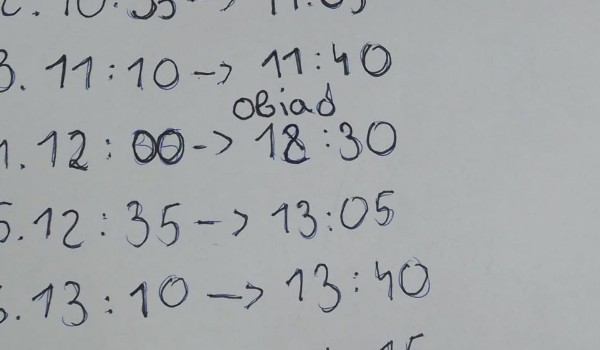 3. 11:10 -> 11:40
obiad
12:00 -> 18:30
5. 12:35 -> 13:05
13:10 -> 13:40